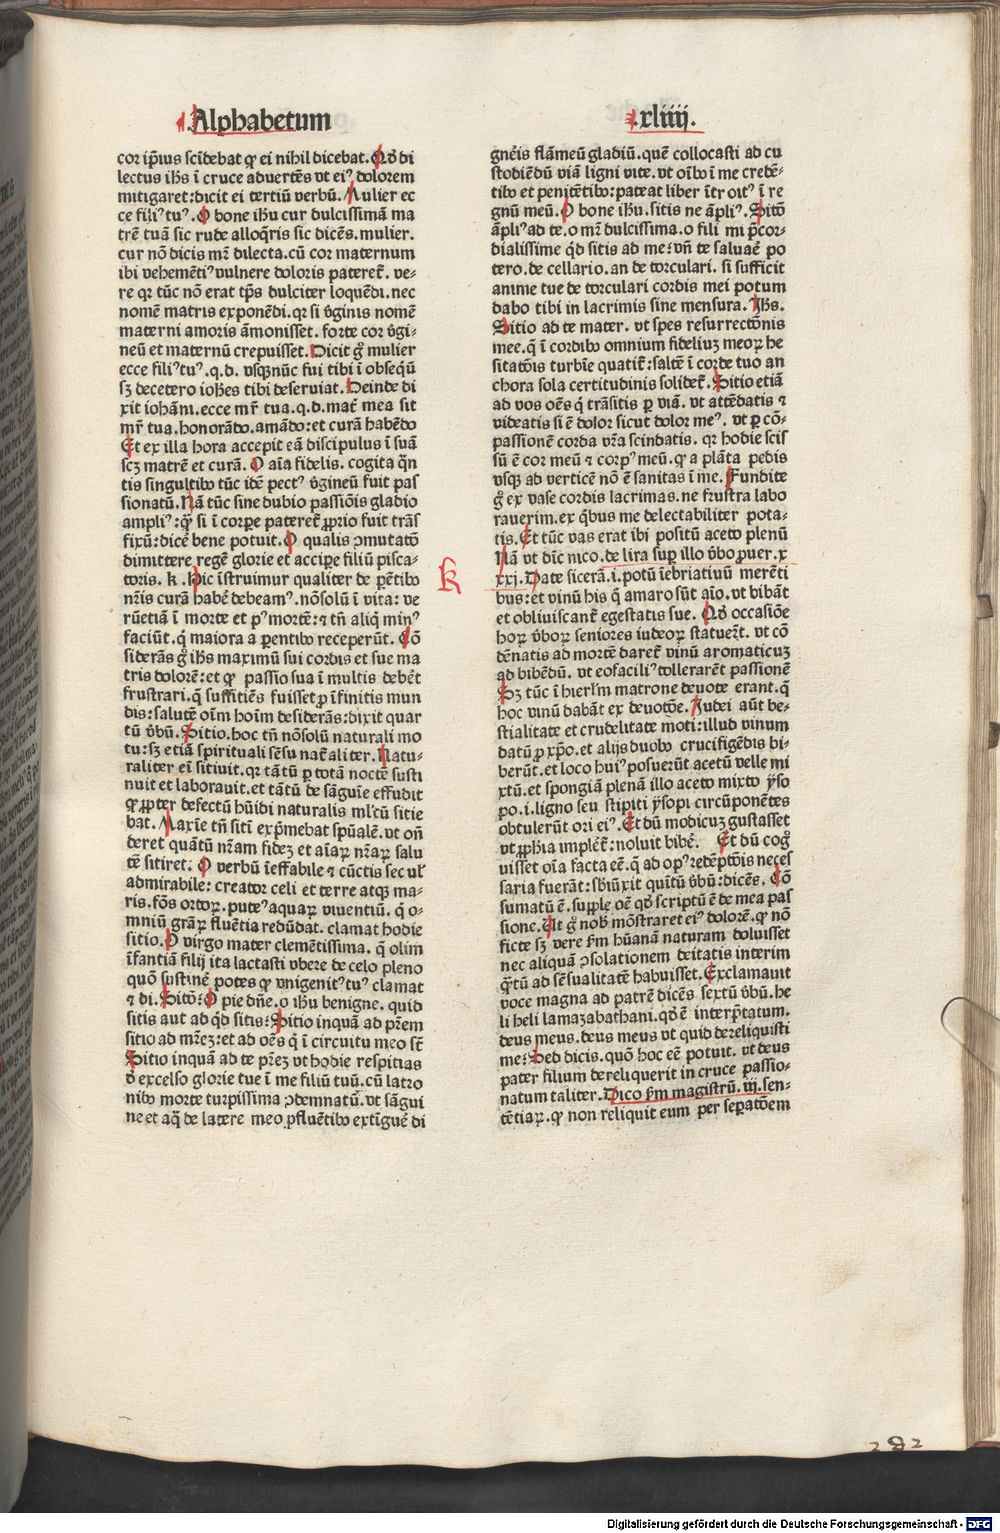 Alphabetum
.xliiij.
cor ip̄ius scīdebat ꝙ ei nihil dicebat. Qd̕ di
lectus ih̄s ī cruce aduertēs vt eiꝰ dolorem
mitigaret:dicit ei tertiū verbū. Mulier ec
ce filiꝰ tuꝰ. O bone ih̄u cur dulcissimā ma
trē tuā sic rude alloq̄ris sic dicēs. mulier.
cur nō dicis mr̄ dilecta. cū cor maternum
ibi vehemētiꝰ vulnere doloris pateret̄. ve-
re qr tūc nō erat tp̄s dulciter loquēdi. nec
nomē matris exponēdi. qr si v̕ginis nomē
materni amoris āmonisset. forte cor v̕gi-
neū et maternū crepuisset. Dicit g̊ mulier
ecce filiꝰ tuꝰ .q.d. vsqꝫ nūc fui tibi ī obseq̄ū
sꝫ decetero ioh̄es tibi deseruiat. Deinde di
xit ioh̄āni. ecce mr̄ tua. q.d. mat̄ mea sit
mr̄ tua. honorādo. amādo: et curā habēdo
Et ex illa hora accepit eā discipulus ī suā
scꝫ matrē et curā. O aīa fidelis. cogita q̄n
tis singultibꝰ tūc idē pectꝰ v̕gineū fuit pas
sionatū. Nā tūc sine dubio passiōis gladio
ampliꝰ: qꝫ si ī corpe pateret̄ ꝓprio fuit trās
fixū: dicē bene potuit. O qualis ꝯmutatō
dimittere regē glorie et accipe filiū pisca-
toris. k. Hic īstruimur qualiter de pētibꝰ
nr̄is curā habē debeamꝰ. nōsolū ī vita: ve
rūetiā ī morte et pꝰ mortē: ⁊ tn̄ aliq̄ minꝰ
faciūt. q̄ maiora a parentibꝰ receperūt. Cō
siderās g̊ ih̄s maximū sui cordis et sue ma
tris dolorē: et ꝙ passio sua ī multis debēt
frustrari. q̄ suffitiēs fuisset ꝓ īfinitis mun
dis: salutē oīm hoīm desiderās: dixit quar
tū v̕bū. Sitio. hoc tn̄ nōsolū naturali mo
tu: sꝫ etiā spirituali sēsu nat̄aliter. Natu-
raliter eī sitiuit. qr tātū ꝑ totā noctē susti
nuit et laborauit. et tātū de sāguīe effudit
ꝙ ꝓpter defectū hūidi naturalis ml̄tū sitie
bat. Maxīe tn̄ sitī exp̄mebat spūalē. vt on̄
deret quātū nr̄am fidez et aīaꝝ nr̄aꝝ salu
tē sitiret. O verbū īeffabile ⁊ cūctis sec ul̕
admirabile: creator celi et terre atqꝫ ma-
ris. fōs ortoꝝ. puteꝰ aquaꝝ viuentiū. q̄ o-
mniū grāꝝ fluētia redūdat. clamat hodie
sitio. O virgo mater clemētissima. q̄ olim
īfantiā filij ita lactasti vbere de celo pleno
quō sustinē potes ꝙ vnigenitꝰ tuꝰ clamat
⁊ di. Sitō: O pie dn̄e. o ih̄u benigne. quid
sitis aut ad qd̄ sitis: Sitio inquā ad pr̄em
sitio ad mr̄ez: et ad oēs q̄ ī circuitu meo sr̄
Sitio inquā ad te pr̄ez vt hodie respitias
d̕ excelso glorie tue ī me filiū tuū. cū latro
nibꝰ morte turpissima ꝯdemnatū. vt sāgui
ne et aq̄ de latere meo ꝓfluētibꝰ extīguē di
k
gnēis flāmeū gladiū. quē collocasti ad cu
stodiēdū viā ligni vite. vt oībꝰ ī me credē-
tibꝰ et penitētibꝰ: pateat liber ītroitꝰ ī re
gnū meū. O bone ih̄u. sitis ne āpliꝰ. Sitō
āpliꝰ ad te. o mr̄ dulcissima. o fili mi p̄cor-
dialissime qd̄ sitis ad me: vn̄ te saluaē po
tero. de cellario. an de torculari. si sufficit
anime tue de torculari cordis mei potum
dabo tibi in lacrimis sine mensura. Ih̄s.
Sitio ad te mater. vt spes resurrectōnis
mee. q̄ ī cordibꝰ omnium fideliuꝫ meoꝝ he
sitatōis turbīe quatit̄: saltē ī corde tuo an
chora sola certitudinis solidet̄. Sitio etiā
ad vos oēs q̄ trāsitis ꝑ viā. vt attēdatis ⁊
videatis si ē dolor sicut dolor meꝰ. vt ꝑ cō-
passionē corda vr̄a scindatis. qr hodie scis
sū ē cor meū ⁊ corpꝰ meū. ꝙ a plāta pedis
vsqꝫ ad verticē nō ē sanitas ī me. Fundite
g̊ ex vase cordis lacrimas. ne frustra labo
rauerim. ex q̄bus me delectabiliter pota-
tis. Et tūc vas erat ibi positū aceto plenū
Nā vt dīc nico. de lira suꝑ illo v̕bo ꝓuer. x
xxj. Date sicerā. i. potū īebriatiuū merēti
bus: et vinū his q̄ amaro sūt aīo. vt bibāt
et obliuiscant̄ egestatis sue. Qd̕ occasiōe
hoꝝ v̕boꝝ seniores iudeoꝝ statuer̄t. vt cō
dēnatis ad mortē daret̄ vinū aromaticuꝫ
ad bibēdū. vt eofaciliꝰ tollerarēt passionē
Sꝫ tūc ī hierl̄m matrone deuote erant. q̄
hoc vinū dabāt ex deuotōe. Iudei aūt be-
stialitate et crudelitate moti: illud vinum
datū ꝓ xp̄o. et alijs duobꝰ crucifigēdis bi-
berūt. et loco huiꝰ posuerūt acetū velle mi
xtū. et spongiā plenā illo aceto mixto ysо
po. i. ligno seu stipiti ysopi circūponētes
obtulerūt ori eiꝰ. Et dū modicuꝫ gustasset
vt ꝓph̄ia implet̄: noluit bibē. Et dū cog̊
uisset oīa facta eē. q̄ ad opꝰ redēptōis neces
saria fuerāt: sb̄iūxit quītū v̕bū: dicēs. Cō
sumatū ē. supple oē qd̕ scriptū ē de mea pas
sione. Ut g̊ nob̄ mōstraret eiꝰ dolorē. ꝙ nō
ficte sꝫ vere fm̄ hūanā naturam doluisset
nec aliquā ꝯsolationem deitatis interim
q̄tū ad sēsualitatē habuisset. Exclamauit
voce magna ad patrē dicēs sextū v̕bū. he
li heli lamazabathani. qd̕ ē interp̄tatum.
deus meus. deus meus vt quid dereliquisti
me: Sed dicis. quō hoc eē potuit. vt deus
pater filium dereliquerit in cruce passio-
natum taliter. Dico fm̄ magistrū. iij. sen-
tētiaꝝ. ꝙ non reliquit eum per sepatōem
282
Digitalisierung gefördert durch die Deutsche Forschungsgemeinschaft - DFG